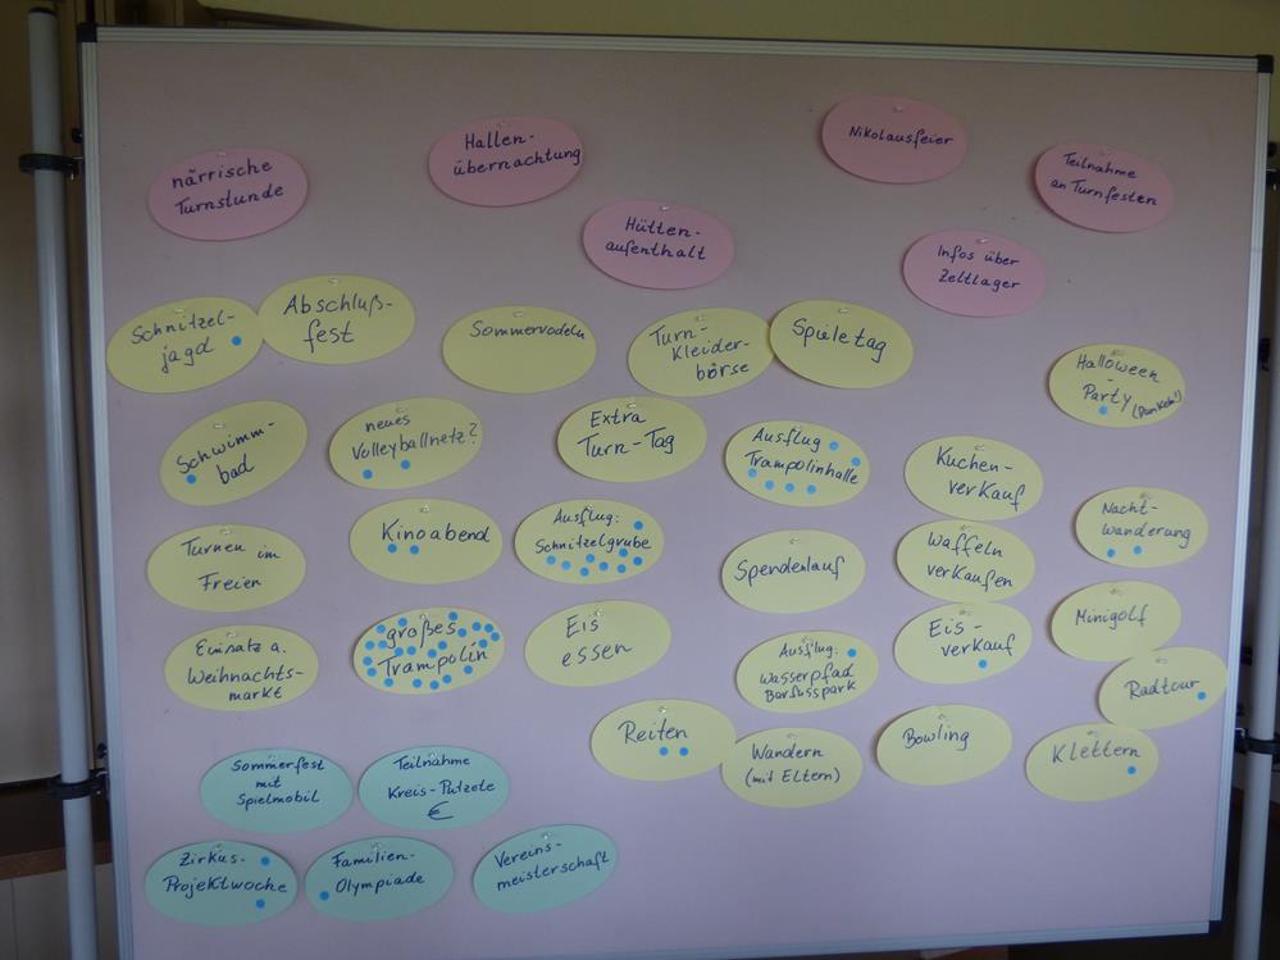 närrische
Turnstunde
Hallen-
übernachtung
Hütten-
aufenthalt
Nikolausfeier
Teilnahme
an Turnfesten
Infos über
Zeltlager
Schnitzel-
jagd
Abschluß-
fest
Sommerrodeln
Turn-
Kleider-
börse
Spieletag
Halloween
-
Party (Dunkeln!)
Schwimm-
bad
neues
Volleyballnetz?
Extra
Turn-Tag
Ausflug
Trampolinhalle
Kuchen-
verkauf
Nacht-
wanderung
Turnen im
Freien
Kinoabend
Ausflug:
Schnitzelgrube
Spendenlauf
Waffeln
verkaufen
Minigolf
Einsatz a.
Weihnachts-
markt
großes
Trampolin
Eis
essen
Ausflug:
Wasserpfad
Barfusspark
Eis-
verkauf
Radtour
Reiten
Wandern
(mit Eltern)
Bowling
Klettern
Sommerfest
mit
Spielmobil
Teilnahme
Kreis-Putzete
€
Zirkus-
Projektwoche
Familien-
Olympiade
Vereins-
meisterschaft